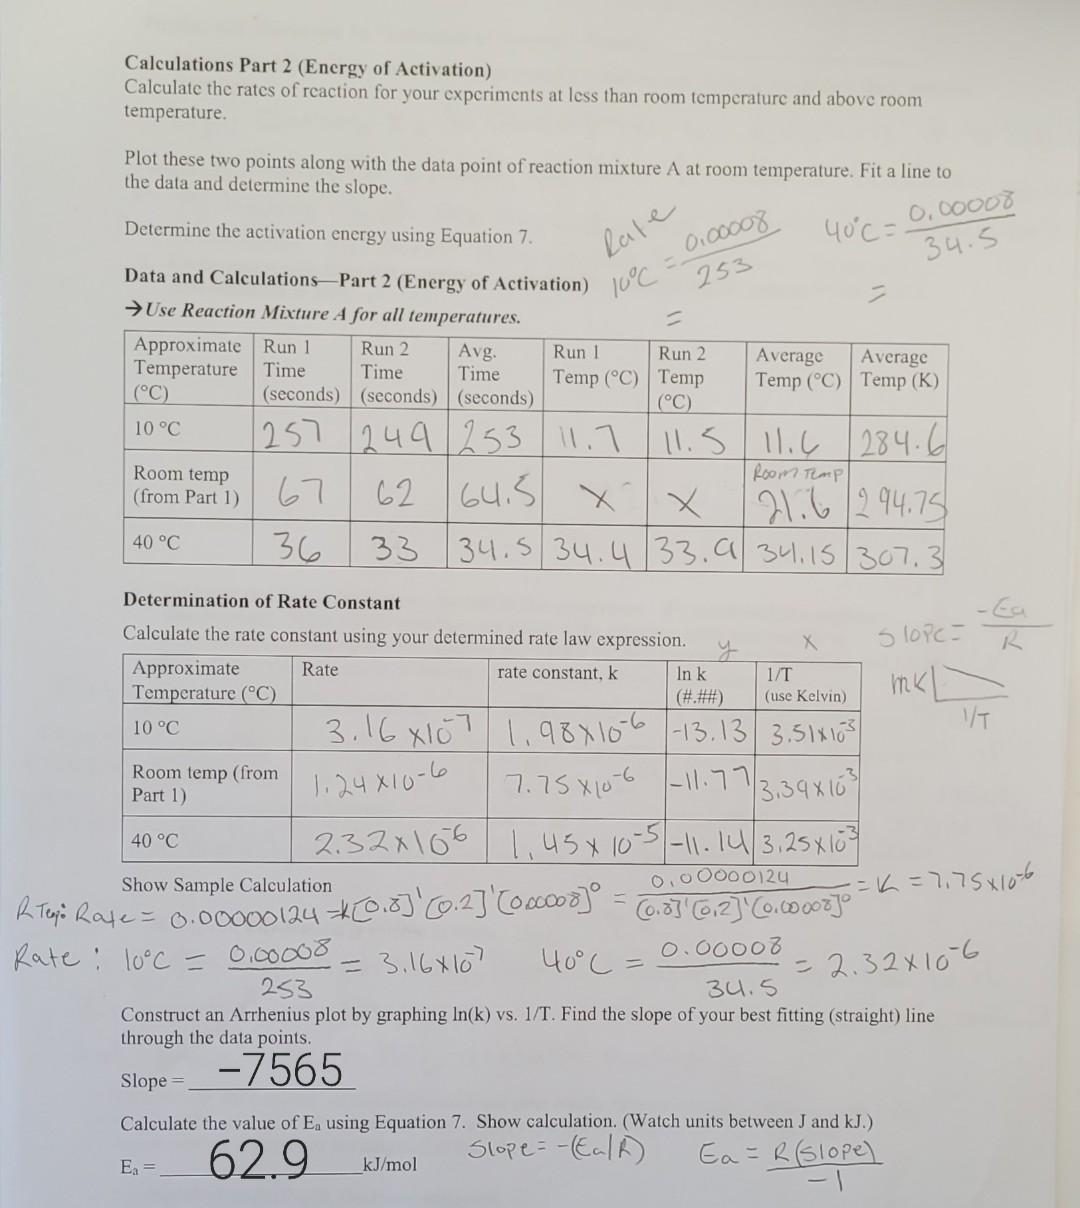 Calculations Part 2 (Energy of Activation)
Calculate the rates of reaction for your experiments at less than room temperature and above room
temperature.
Plot these two points along with the data point of reaction mixture A at room temperature. Fit a line to
the data and determine the slope.
Determine the activation energy using Equation 7.
Rate
10°C = 0.00008 / 253
=
40°C = 0.00008 / 34.5
=
Data and Calculations—Part 2 (Energy of Activation)
→ Use Reaction Mixture A for all temperatures.
Approximate Temperature (°C) | Run 1 Time (seconds) | Run 2 Time (seconds) | Avg. Time (seconds) | Run 1 Temp (°C) | Run 2 Temp (°C) | Average Temp (°C) | Average Temp (K)
10 °C | 257 | 249 | 253 | 11.7 | 11.5 | 11.6 | 284.6
Room temp (from Part 1) | 67 | 62 | 64.5 | X | X | Room Temp 21.6 | 294.75
40 °C | 36 | 33 | 34.5 | 34.4 | 33.9 | 34.15 | 307.3
Determination of Rate Constant
Calculate the rate constant using your determined rate law expression.
y x
slope = -Ea / R
mk
1/T
Approximate Temperature (°C) | Rate | rate constant, k | ln k (#.##) | 1/T (use Kelvin)
10 °C | 3.16 x10⁻⁷ | 1.98x10⁻⁶ | -13.13 | 3.51x10⁻³
Room temp (from Part 1) | 1.24 x10⁻⁶ | 7.75 x10⁻⁶ | -11.77 | 3.39x10⁻³
40 °C | 2.32x10⁻⁶ | 1.45x 10⁻⁵ | -11.14 | 3.25x10⁻³
Show Sample Calculation
R Temp: Rate = 0.00000124 = k[0.8]¹[0.2]¹[0.00008]⁰ = 0.00000124 / [0.8]¹[0.2]¹[0.00008]⁰ = K = 7.75x10⁻⁶
Rate: 10°C = 0.00008 / 253 = 3.16x10⁻⁷ 40°C = 0.00008 / 34.5 = 2.32x10⁻⁶
Construct an Arrhenius plot by graphing ln(k) vs. 1/T. Find the slope of your best fitting (straight) line
through the data points.
Slope = -7565
Calculate the value of Eₐ using Equation 7. Show calculation. (Watch units between J and kJ.)
Eₐ = 62.9 kJ/mol
Slope = -(Ea/R) Ea = R(slope) / -1